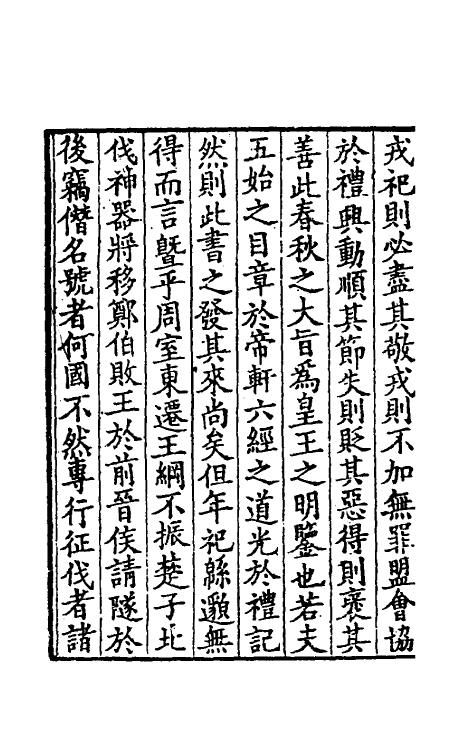 戎祀則必盡其敬戎則不加無罪盟會協
於禮興動順其節失則貶其惡得則襃其
善此春秋之大旨爲皇王之明鑒也若夫
五始之目章於帝軒六經之道光於禮記
然則此書之發其來尚矣但年祀緜邈無
得而言暨乎周室東遷王綱不振楚子北
伐神器將移鄭伯敗王於前晉侯請隧於
後竊僭名號者何國不然專行征伐者諸